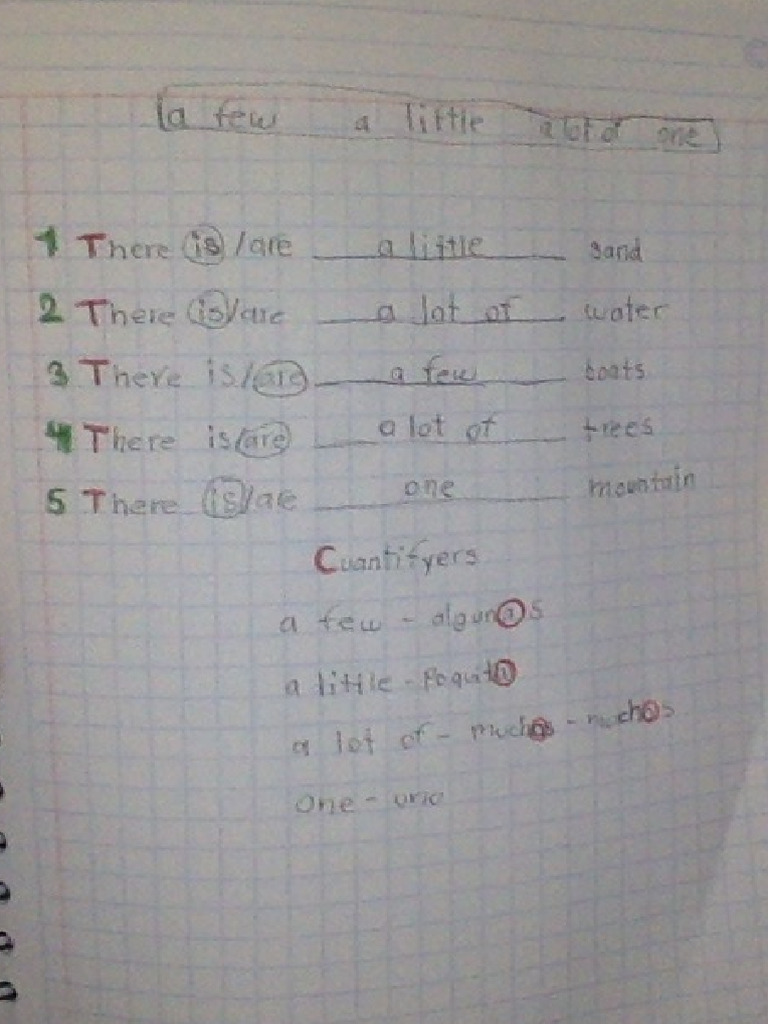 a few a little a lot of one
1 There is/are a little sand
2 There is/are a lot of water
3 There is/are a few boats
4 There is/are a lot of trees
5 There is/are one mountain
Cuantifyers
a few - algun@s
a little - Poquit@
a lot of - much@ - much@s
One - uno